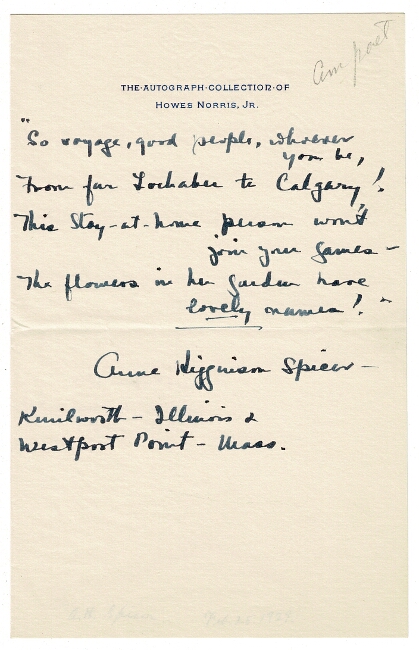 Am poet
THE·AUTOGRAPH·COLLECTION·OF
HOWES NORRIS, JR.
"So voyage, good people, wherever
you be,
From far Lochaber to Calgary!
This stay-at-home person won't
join your games –
The flowers in her garden have
lovely names!"
Anne Higginson Spicer –
Kenilworth – Illinois &
Westport Point – Mass.
A.H. Spicer